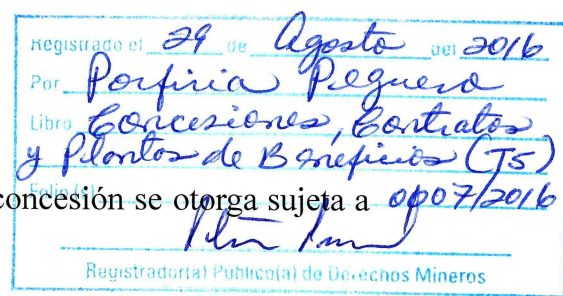 Registrado el 29 de Agosto del 2016
Por Porfiria Peguero
Libro Concesiones, Contratos
y Plantas de Beneficios (T5)
Folio (s) 0007/2016
concesión se otorga sujeta a
Registrador(a) Público(a) de Derechos Mineros